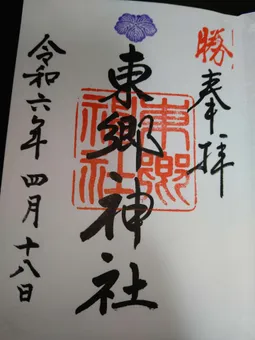 勝!
奉拝
東郷神社
東郷
神社
令和六年 四月 十八日